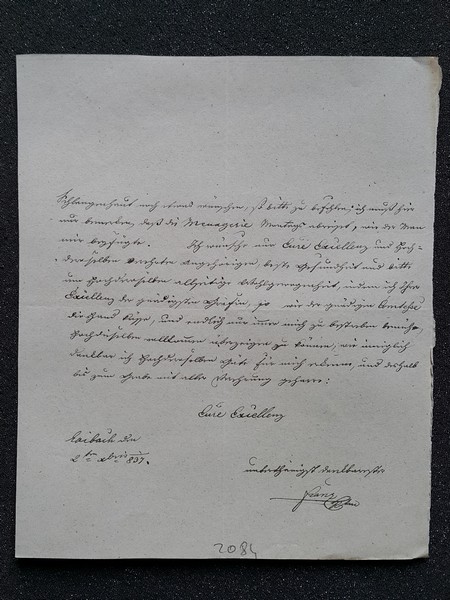 Schlangenhaut noch etwas wünschen, so bitte zu befehlen; ich muß hier
nur bemerken, daß die Menagerie Montags abreiset, wie der Mann
mir beyfügte. Ich wünsche nur Eure Exellenz und Hoch-
derselben verehrten Angehörigen, beste Gesundheit und bitte
um Hochderselben allseitige Wohlgewogenheit, indem ich Ihrer
Exellenz der gnädigsten Gräfin, so wie der gnädigen Comtesse
die Hand küsse, und endlich nur immer mich zu bestreben
Hochdieselben vollkommen überzeugen zu können, wie inniglich
dankbar ich Hochderselben Güte für mich und deshalb
bis zum Grabe mit aller Verehrung geharre:
Eure Exellenz
Laibach den
2ten 837.
unterthänigst dankbarster
Franz
2084